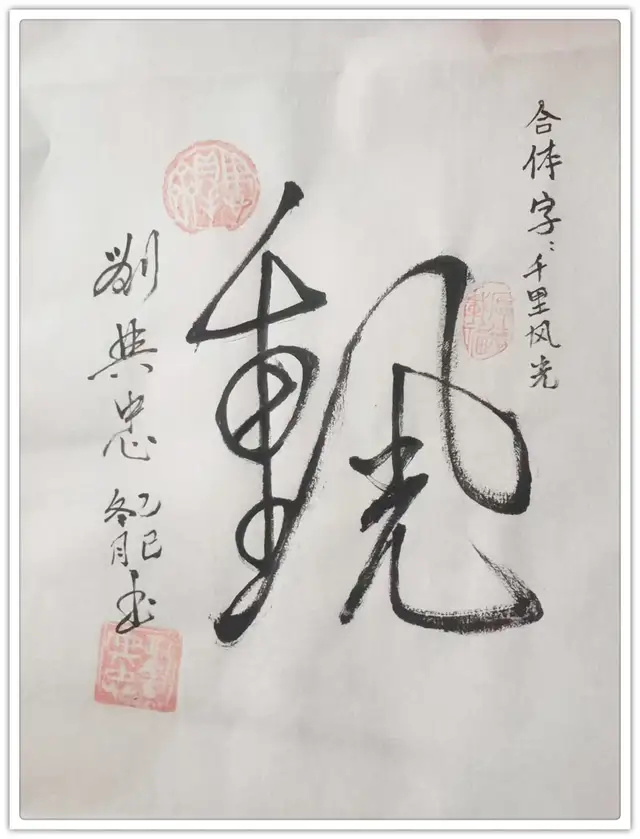 合体字：千里风光
劉典忠
乙巳
冬月书